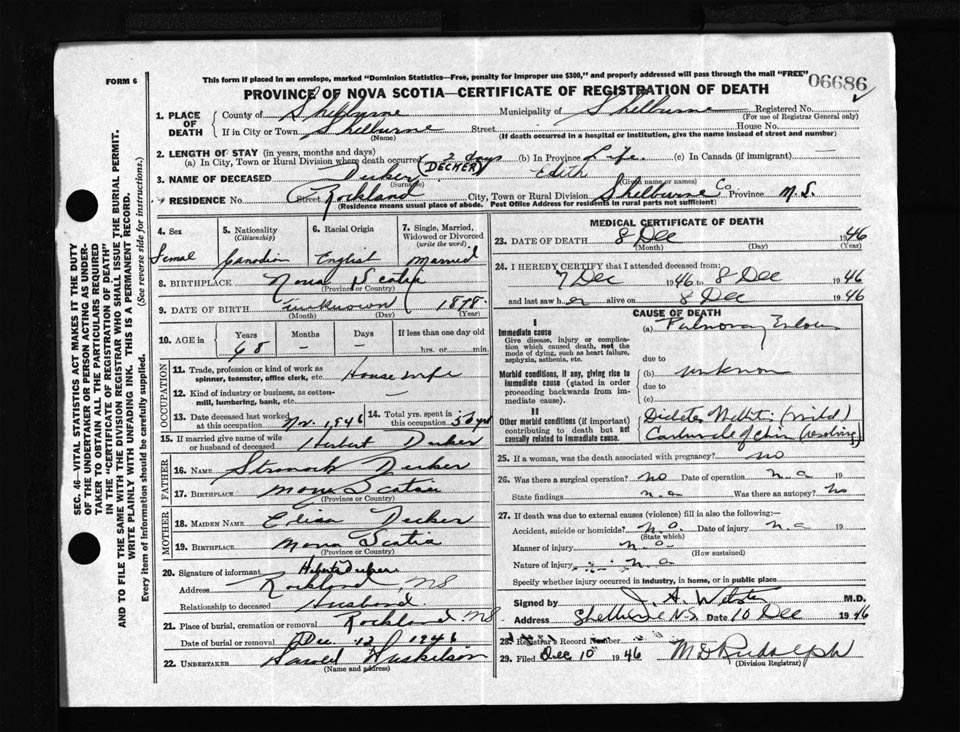 FORM 6
This form if placed in an envelope, marked "Dominion Statistics—Free, penalty for improper use $300," and properly addressed will pass through the mail "FREE"
06686
PROVINCE OF NOVA SCOTIA—CERTIFICATE OF REGISTRATION OF DEATH
1. PLACE OF DEATH
County of Shelburne Municipality of Shelburne Registered No.
(For use of Registrar General only)
If in City or Town Shelburne Street House No.
(Name) (If death occurred in a hospital or institution, give the name instead of street and number)
2. LENGTH OF STAY (in years, months and days)
(a) In City, Town or Rural Division where death occurred 2 days (b) In Province Life. (c) In Canada (if immigrant) —
3. NAME OF DECEASED Decker (DECKER) Edith
(Surname) (Given name or names)
RESIDENCE No. Street Rockland City, Town or Rural Division Shelburne Co Province N.S.
(Residence means usual place of abode. Post Office Address for residents in rural parts not sufficient)
4. Sex 5. Nationality (Citizenship) 6. Racial Origin 7. Single, Married, Widowed or Divorced (write the word)
Femal Canadian English Married
8. BIRTHPLACE Nova Scotia
(Province or Country)
9. DATE OF BIRTH Unknown 1878
(Month) (Day) (Year)
10. AGE in Years Months Days If less than one day old
68 – – hrs. or min.
OCCUPATION
11. Trade, profession or kind of work as spinner, teamster, office clerk, etc. House wife
12. Kind of industry or business, as cotton-mill, lumbering, bank, etc. —
13. Date deceased last worked at this occupation Nv. 1946 14. Total yrs. spent in this occupation 50 yrs
15. If married give name of wife or husband of deceased Herbert Decker
FATHER
16. NAME Decker
17. BIRTHPLACE Nova Scotia
(Province or Country)
MOTHER
18. MAIDEN NAME Eliza Decker
19. BIRTHPLACE Nova Scotia
(Province or Country)
20. Signature of informant Herbert Decker
Address Rockland, NS
Relationship to deceased Husband
21. Place of burial, cremation or removal Rockland NS
Date of burial or removal Dec. 12 1946
22. UNDERTAKER Harold Huskilson
(Name and address)
MEDICAL CERTIFICATE OF DEATH
23. DATE OF DEATH 8 Dec 1946
(Month) (Day) (Year)
24. I HEREBY CERTIFY that I attended deceased from:
7 Dec 1946 to 8 Dec 1946
and last saw h er alive on 8 Dec 1946
CAUSE OF DEATH
I
Immediate cause
Give disease, injury or complication which caused death, not the mode of dying, such as heart failure, asphyxia, asthenia, etc.
(a) Pulmonary
due to
Morbid conditions, if any, giving rise to immediate cause (stated in order proceeding backwards from immediate cause).
(b) unknown
due to
(c)
II
Other morbid conditions (if important) contributing to death but not causally related to immediate cause.
Diabetes Mellitis (mild)
Carbuncle of chin (resolving)
25. If a woman, was the death associated with pregnancy? no
26. Was there a surgical operation? no Date of operation n.a 19
State findings n.a Was there an autopsy? No
27. If death was due to external causes (violence) fill in also the following:—
Accident, suicide or homicide? n.o. Date of injury n.a 19
(State which)
Manner of injury n.o
(How sustained)
Nature of injury n.a
Specify whether injury occurred in industry, in home, or in public place
Signed by J. A. Webster M.D.
Address Shelburne N.S. Date 10 Dec 1946
28. Registrar's Record Number
29. Filed Dec 10 1946 M D Rudolph
(Division Registrar)
SEC. 46—VITAL STATISTICS ACT MAKES IT THE DUTY
OF THE UNDERTAKER OR PERSON ACTING AS UNDER-
TAKER TO OBTAIN ALL THE PARTICULARS REQUIRED
IN THE "CERTIFICATE OF REGISTRATION OF DEATH"
AND TO FILE THE SAME WITH THE DIVISION REGISTRAR WHO SHALL ISSUE THE BURIAL PERMIT.
WRITE PLAINLY WITH UNFADING INK. THIS IS A PERMANENT RECORD.
Every item of information should be carefully supplied. (See reverse side for instructions.)